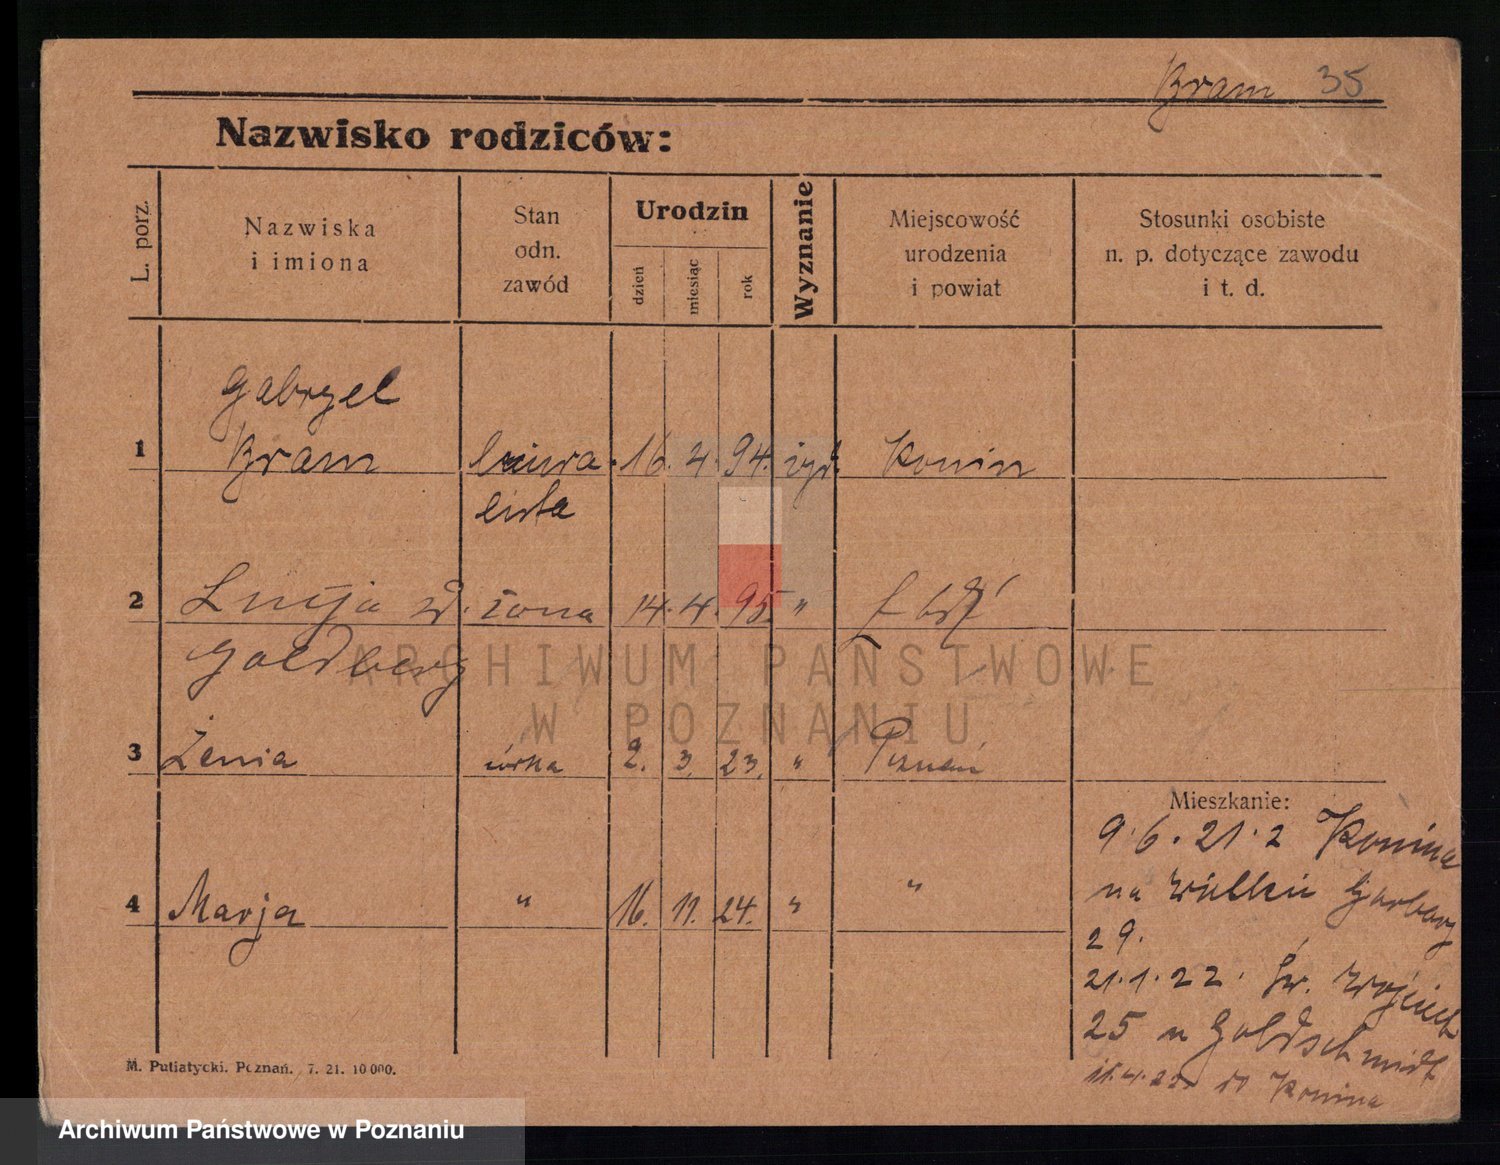 Bram 35
Nazwisko rodziców:
L. porz.
Nazwiska
i imiona
Stan
odn.
zawód
Urodzin
dzień
miesiąc
rok
Wyznanie
Miejscowość
urodzenia
i powiat
Stosunki osobiste
n. p. dotyczące zawodu
i t. d.
Gabryel
1 Bram 16. 4. 94. żyd. Konin
lista
2 Lucja żona 14. 4. 95. "
Goldberg
3 Żenia córka 2. 3. 23. " Poznań
Mieszkanie:
9.6.21. z Konina
na Wielkie Garbary
4 Marja " 16. 11. 24. " "
29.
21.1.22. Św. Wojciech
25 u Goldschmidt
Konina
M. Putiatycki. Poznań. 7. 21. 10 000.
ARCHIWUM PAŃSTWOWE
W POZNANIU
Archiwum Państwowe w Poznaniu